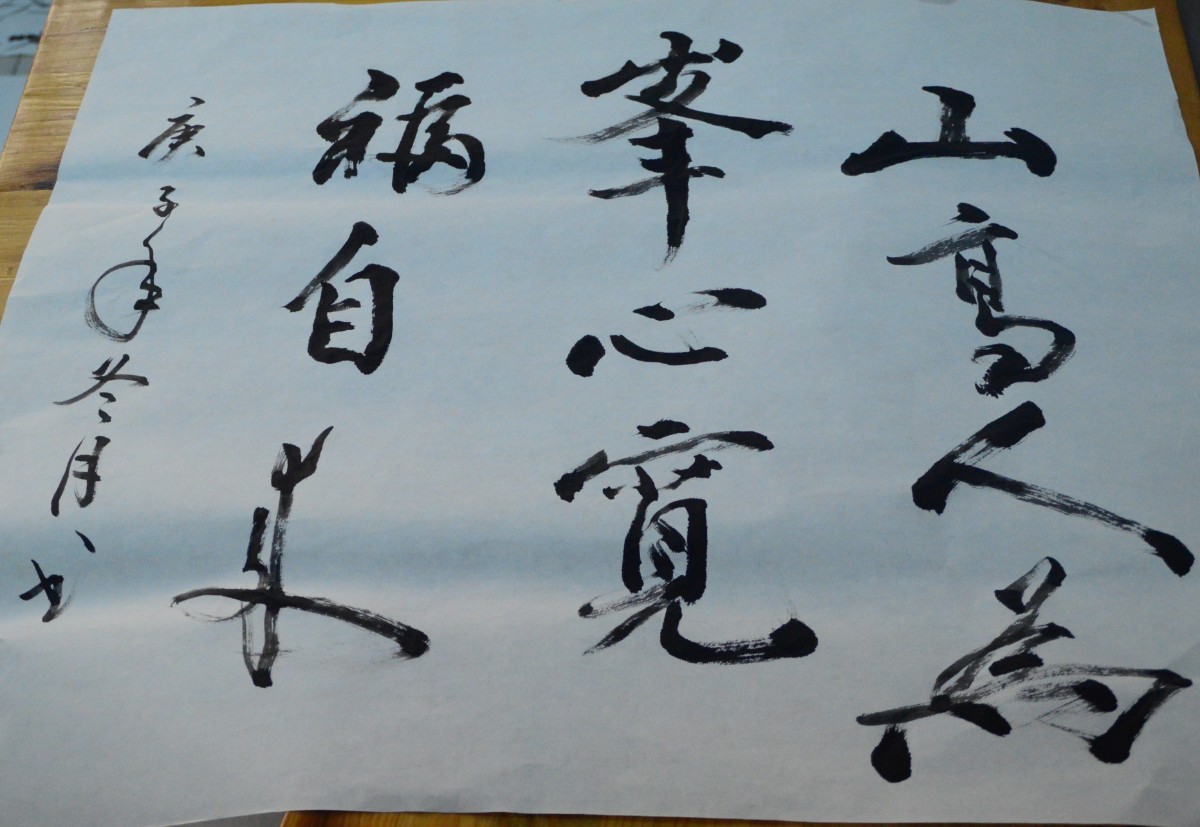 山高人為
峯心寬
福自来
庚子年冬月书